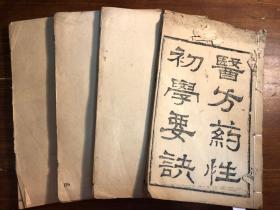 醫方藥性
初學要訣